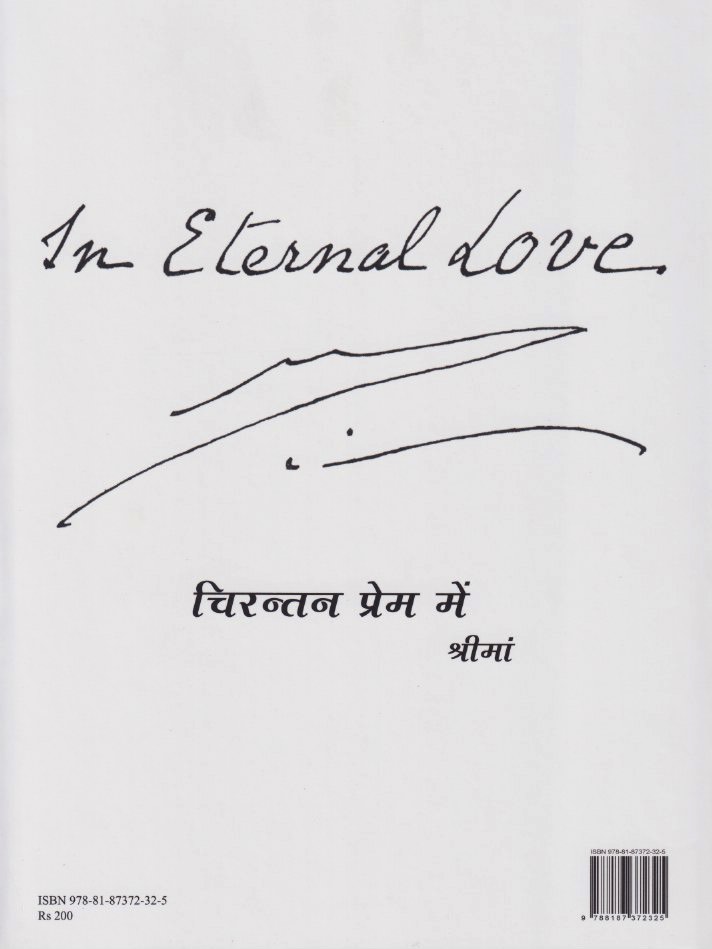 In Eternal Love.
चिरन्तन प्रेम में
श्रीमां
ISBN 978-81-87372-32-5
ISBN 978-81-87372-32-5
Rs 200
9 788187 372325